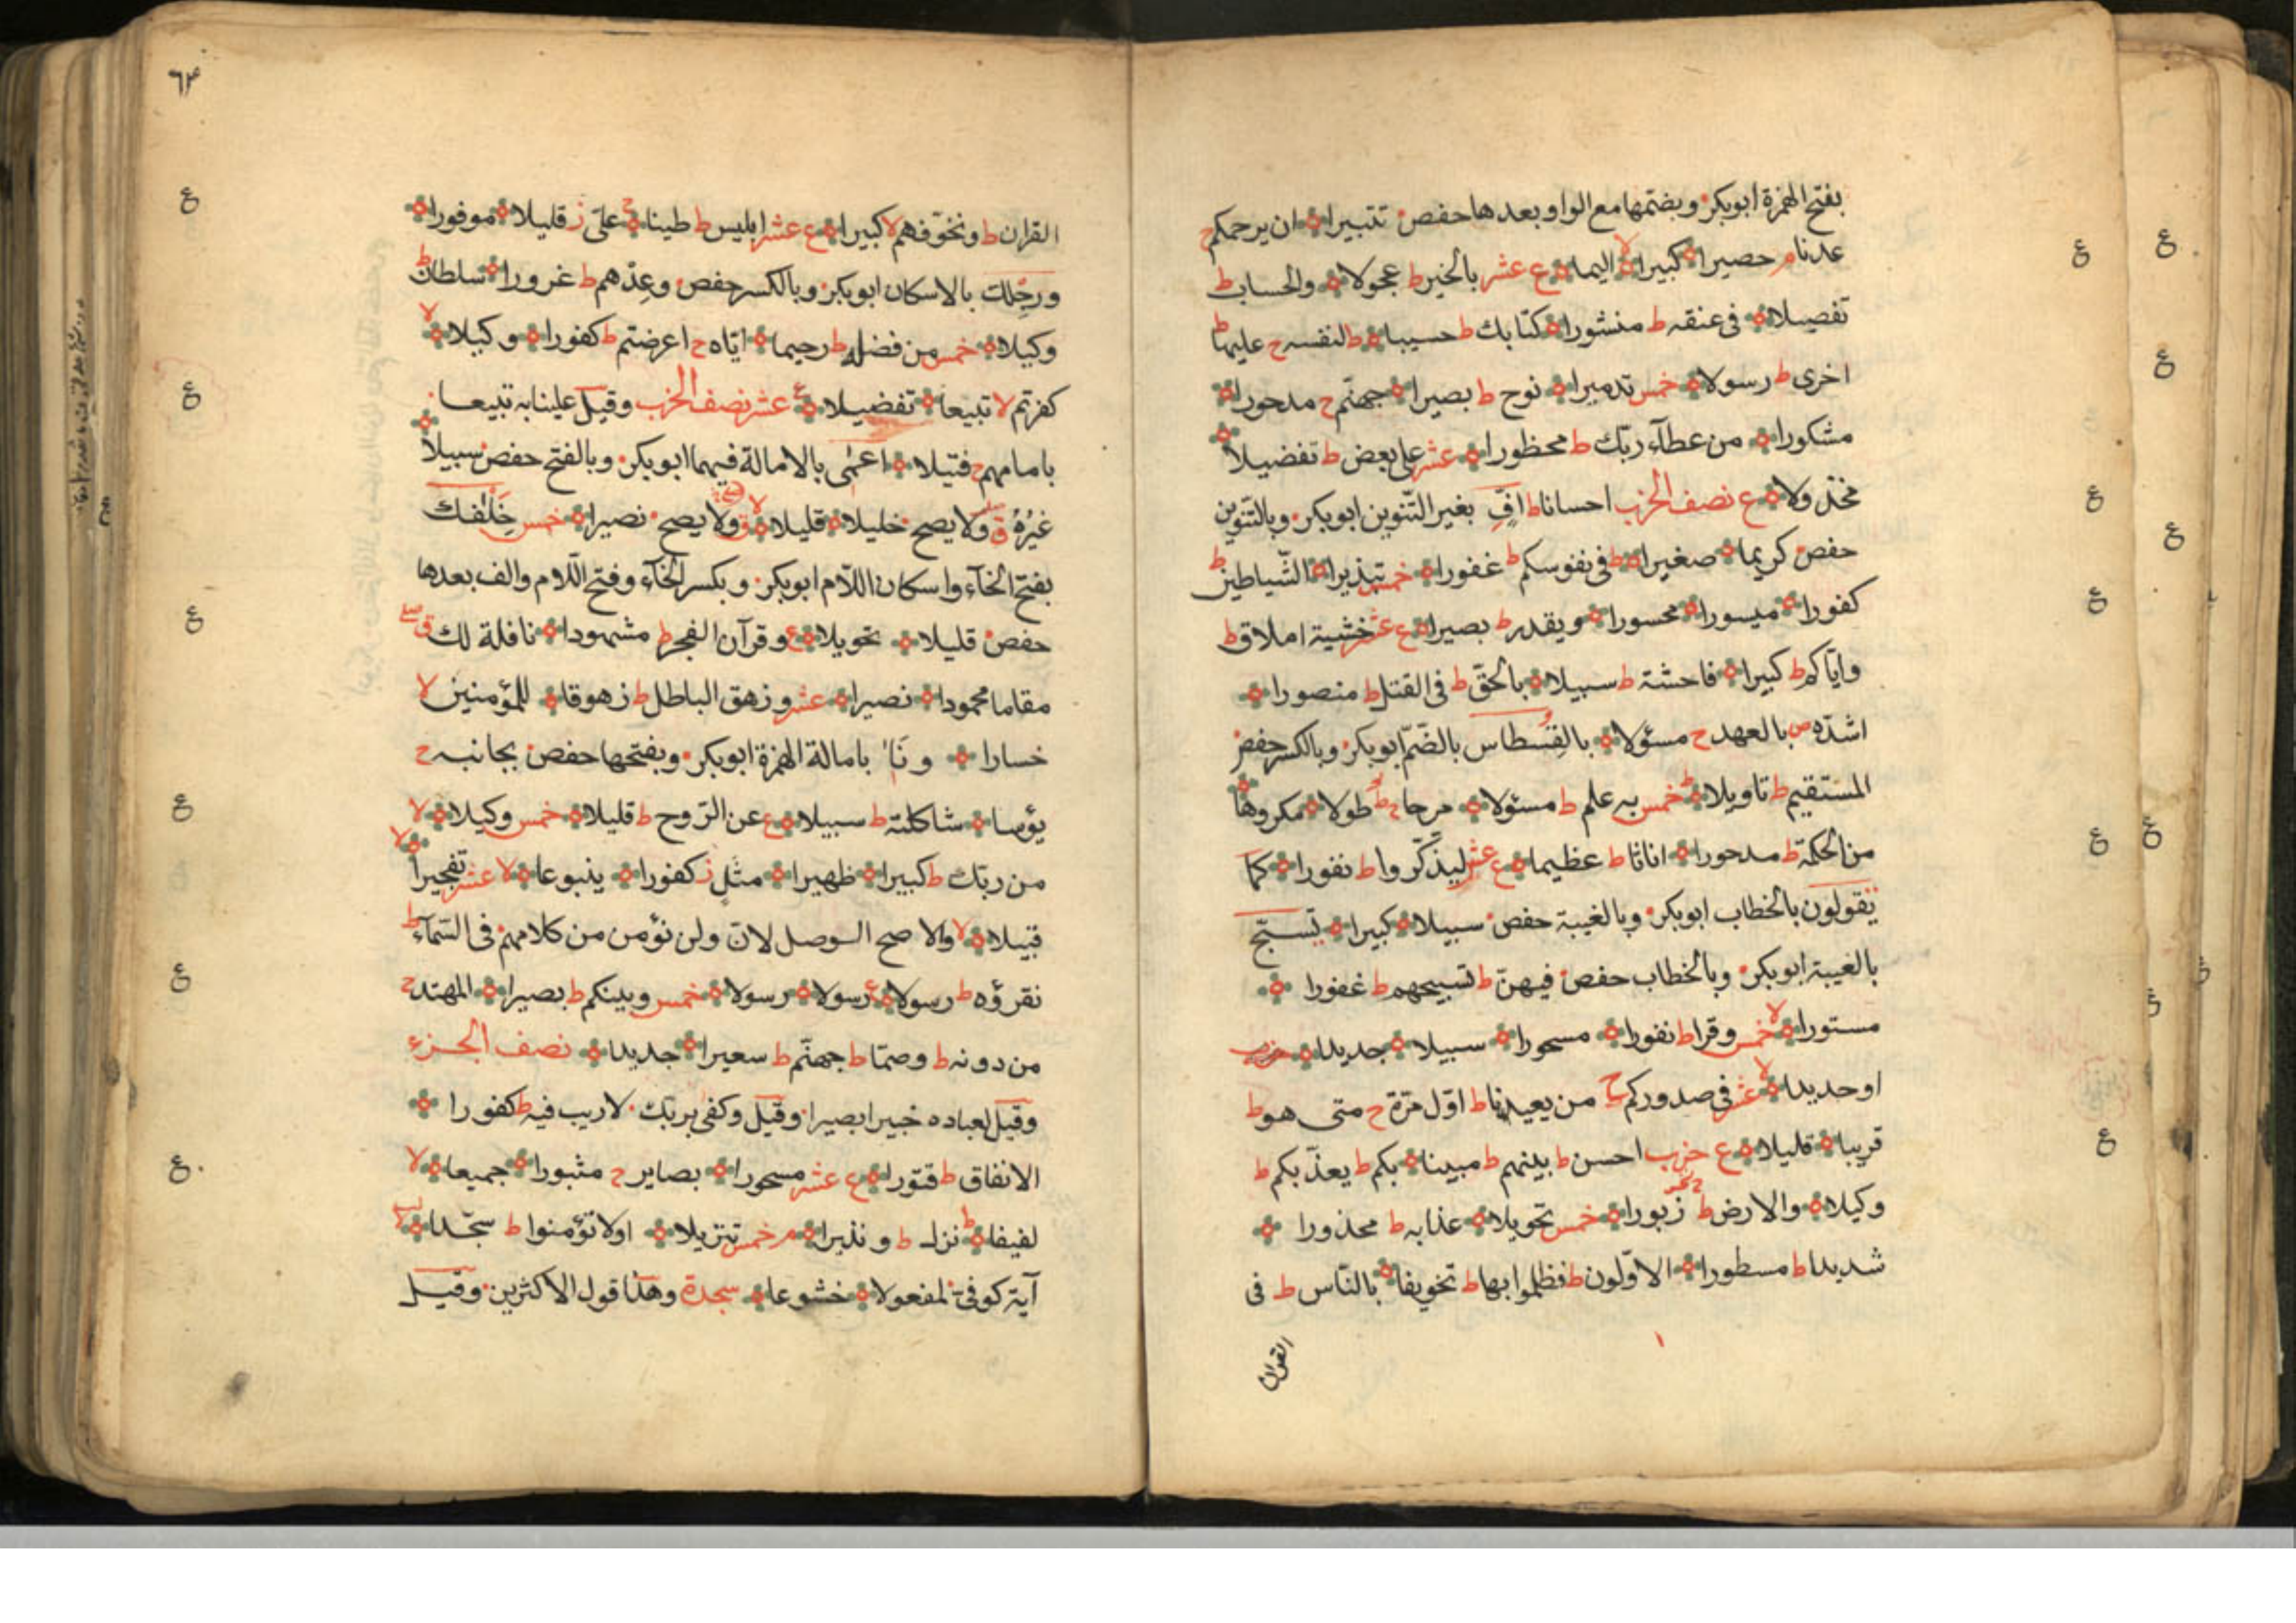 بفتح الهمزة ابوبكر وبضمها مع الواو بعدها حفص تتبيرا ان يرحمكم ح
عدنا م حصيرا كبيرا لا اليما ع عشر بالخير ط عجولا والحساب ط
تفصيلا فى عنقه ط منشورا كتابك ط حسيبا ط لنفسه ح عليها ط
اخرى ط رسولا خمس تدميرا نوح ط بصيرا جهنم ح مدحورا
مشكورا من عطآء ربّك ط محظورا عشر على بعض ط تفضيلا
مخذولا ع نصف الحزب احسانا ط افّ بغير التّنوين ابوبكر وبالتّنوين
حفص كريما صغيرا ط فى نفوسكم ط غفورا خمس تبذيرا الشّياطين ط
كفورا ميسورا محسورا ويقدر ط بصيرا ع عشر خشية املاق ط
وايّاكم ط كبيرا فاحشة ط سبيلا بالحقّ ط فى القتل ط منصورا
اشدّه ص بالعهد ح مسؤلا بالقسطاس بالضّم ابوبكر وبالكسر حفص
المستقيم ط تاويلا خمس به علم ط مسئولا مرحا ح طولا مكروها
من الحكمة ط مدحورا اناثا ط عظيما ع عشر ليذّكّروا ط نفورا كما
يقولون بالخطاب ابوبكر وبالغيبة حفص سبيلا كبيرا تسبّح
بالغيبة ابوبكر وبالخطاب حفص فيهنّ ط تسبيحهم ط غفورا
مستورا لا خمس وقرا ط نفورا مسحورا سبيلا جديدا حزب
او حديدا لا عشر فى صدوركم ج من يعيدنا ط اوّل مرّة ح متى هو ط
قريبا قليلا ع حزب احسن ط بينهم ط مبينا بكم ط يعذّبكم ط
وكيلا والارض ط زبورا خمس تحويلا عذابه ط محذورا
شديدا ط مسطورا الاوّلون ط فظلموا بها ط تخويفا بالنّاس ط فى
القران
٦٣
القران ط ونخوّفهم لا كبيرا ع عشر ابليس ط طينا ج علىّ ز قليلا موفورا
ورجلك بالاسكان ابوبكر وبالكسر حفص وعدهم ط غرورا سلطان ط
وكيلا خمس من فضله ط رحيما ايّاه ح اعرضتم ط كفورا وكيلا لا
كفرتم لا تبيعا تفضيلا ع عشر نصف الحزب وقيل علينا به تبيعا
بامامهم ح فتيلا اعمى بالامالة فيهما ابوبكر وبالفتح حفص سبيلا
غيره ق ولا يصح خليلا قليلا لا ق ولا يصح نصيرا خمس خلفك
بفتح الخآء واسكان اللّام ابوبكر وبكسر الخآء وفتح اللّام والف بعدها
حفص قليلا تحويلا ع وقرآن الفجر ط مشهودا نافلة لك ق
مقاما محمودا نصيرا عشر وزهق الباطل ط زهوقا للمؤمنين لا
خسارا ونا بامالة الهمزة ابوبكر وبفتحها حفص بجانبه ح
يؤسا شاكلته ط سبيلا ع عن الرّوح ط قليلا خمس وكيلا لا
من ربّك ط كبيرا ظهيرا مثل ز كفورا ينبوعا لا عشر تفجيرا لا
قبيلا لا والاصح الوصل لان ولن نؤمن من كلامهم فى السّمآء ط
نقرؤه ط رسولا ع رسولا رسولا خمس وبينكم ط بصيرا المهتد ح
من دونه ط وصمّا ط جهنّم ط سعيرا جديدا نصف الجزء
وقيل لعباده خبيرا بصيرا وقيل وكفى بربّك لا ريب فيه ط كفورا
الانفاق ط قتورا ع عشر مسحورا بصاير ح مثبورا جميعا لا
لفيفا ط نزل ط ونذيرا م خمس تنزيلا اولا تؤمنوا ط سجّدا لا
آية كوفى لمفعولا خشوعا سجدة وهذا قول الاكثرين وقيل
ع
ع
ع
ع
ع
ع
ع
ع
ع
ع
ع